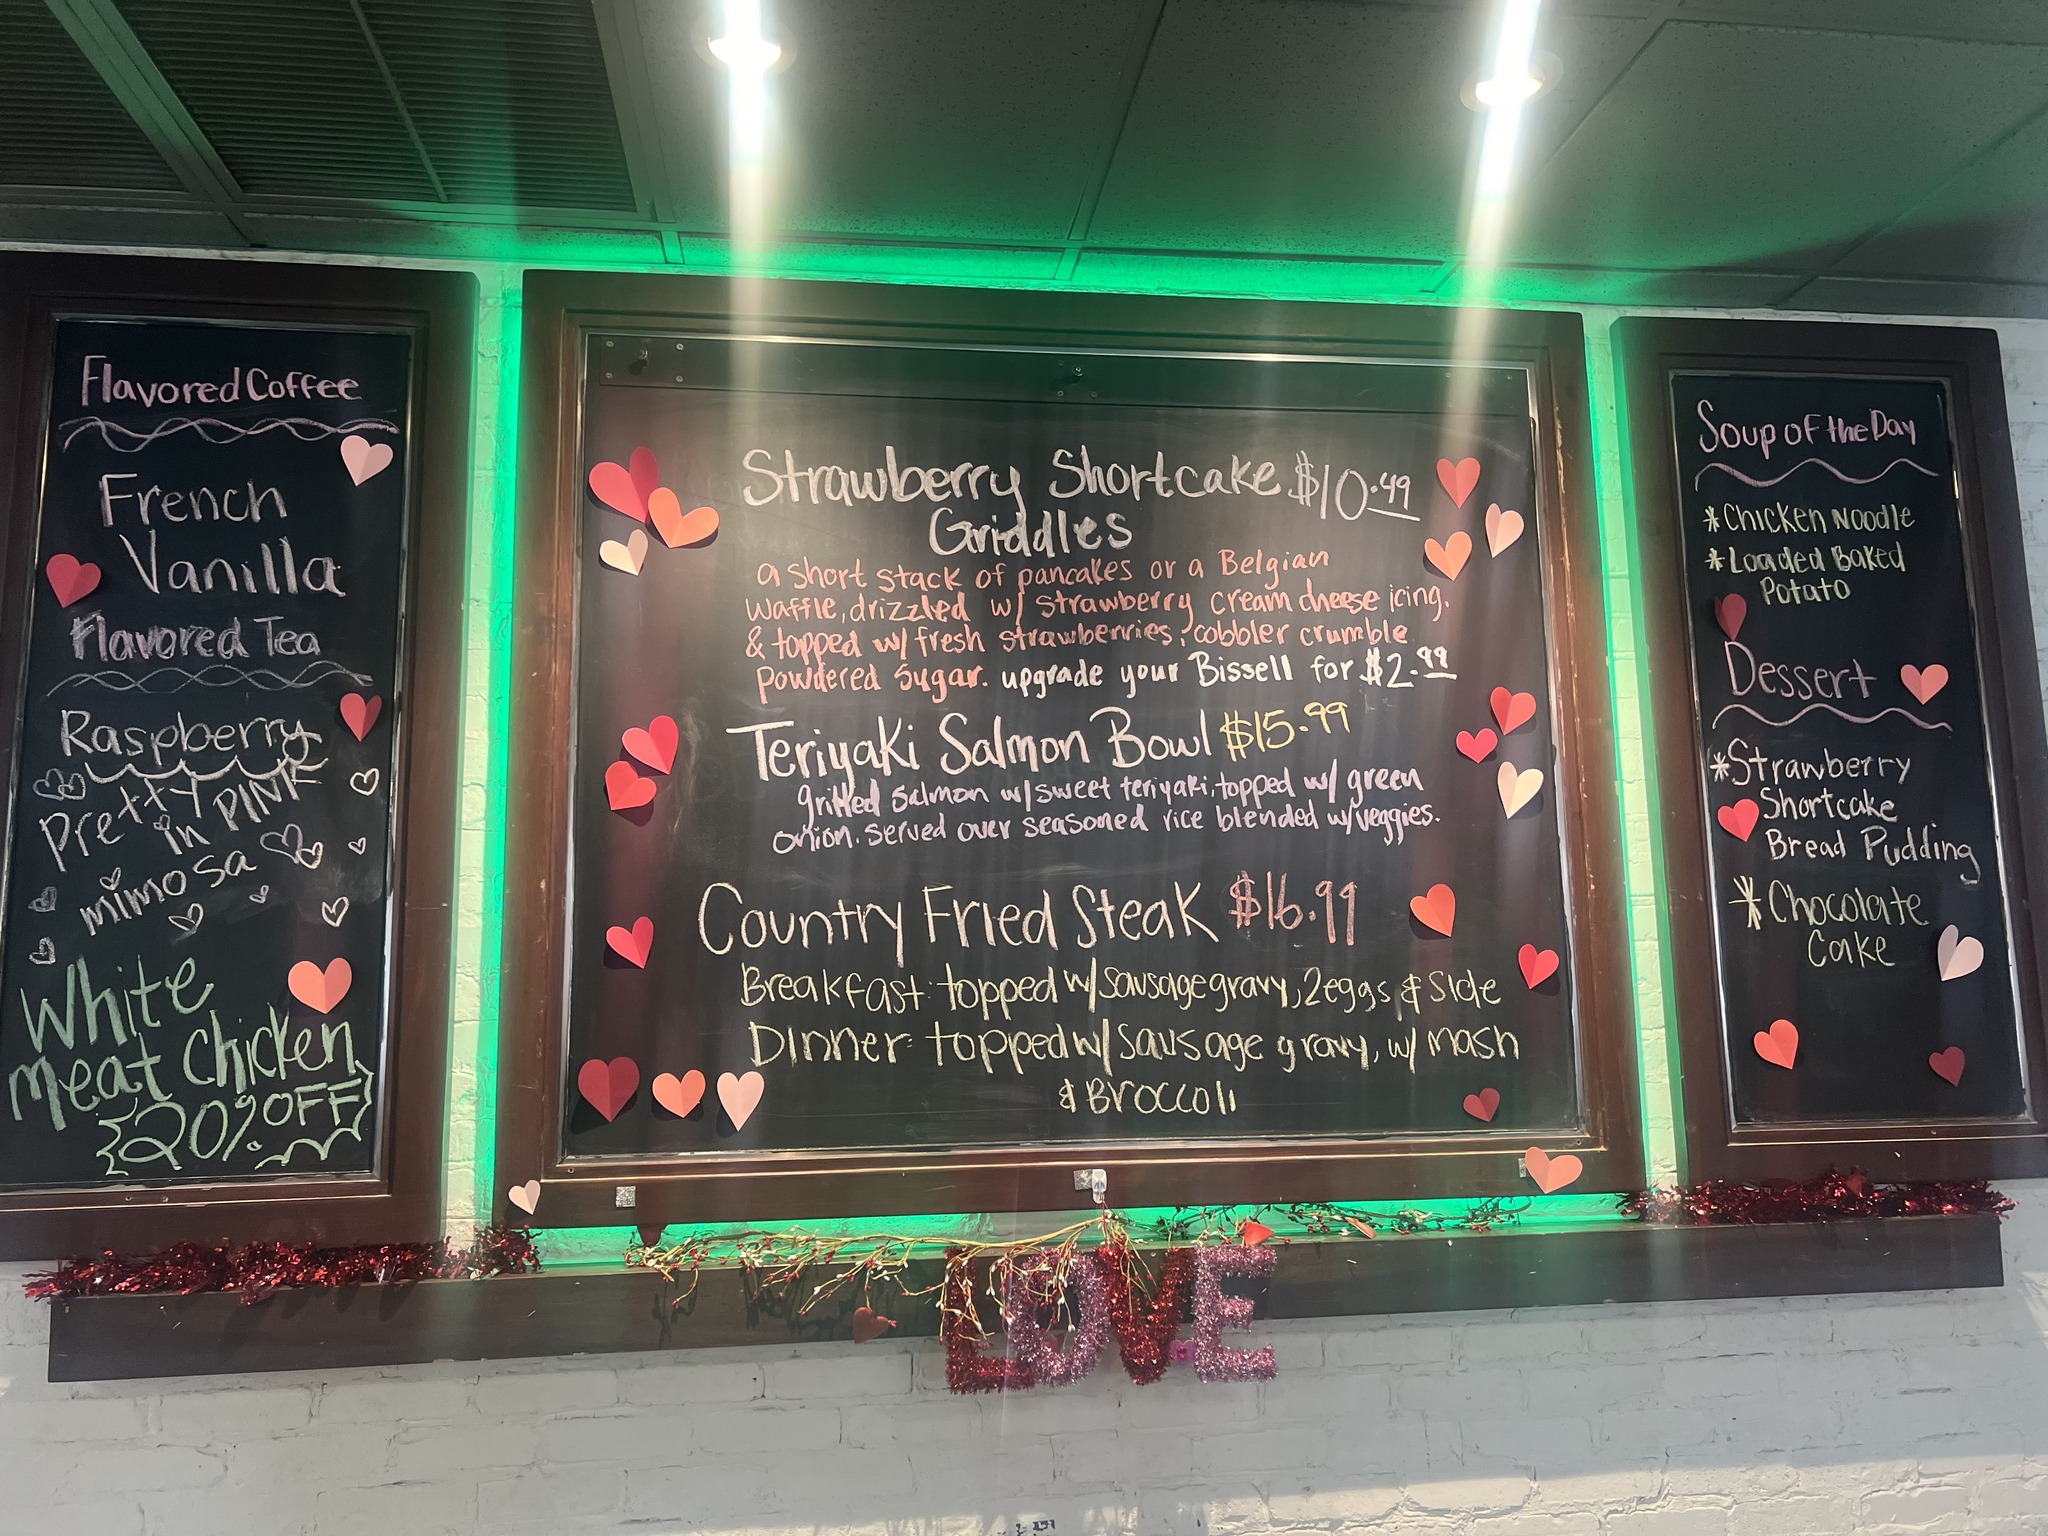 Flavored Coffee
French
Vanilla
Flavored Tea
Raspberry
Pretty
in PINK
mimosa
White
meat chicken
20% OFF
Strawberry Shortcake $10.49
Griddles
a short stack of pancakes or a Belgian
waffle, drizzled w/ strawberry cream cheese icing.
& topped w/ fresh strawberries, cobbler crumble
powdered sugar. upgrade your Bissell for $2.99
Teriyaki Salmon Bowl $15.99
grilled salmon w/ sweet teriyaki, topped w/ green
onion. served over seasoned rice blended w/ veggies.
Country Fried Steak $16.99
Breakfast: topped w/ sausage gravy, 2 eggs & side
Dinner: topped w/ sausage gravy, w/ mash
& Broccoli
Soup of the Day
*Chicken Noodle
*Loaded Baked
Potato
Dessert
*Strawberry
Shortcake
Bread Pudding
*Chocolate
Cake
LOVE